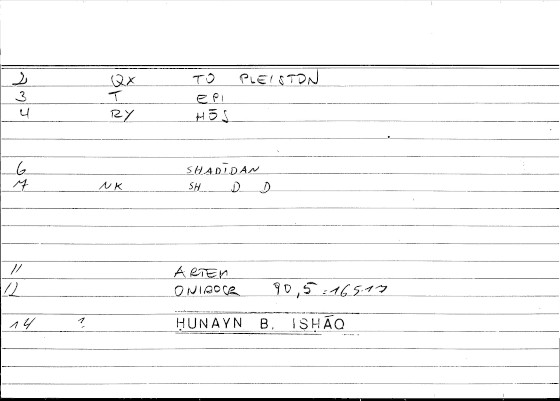 2 QX TO PLEISTON
3 T EPI
4 RY HŌS
6 SHADĪDAN
7 NK SH D D
11 ARTEM
12 ONIROCR 90,5 :16517
14 ? ḤUNAYN B. ISḤĀQ